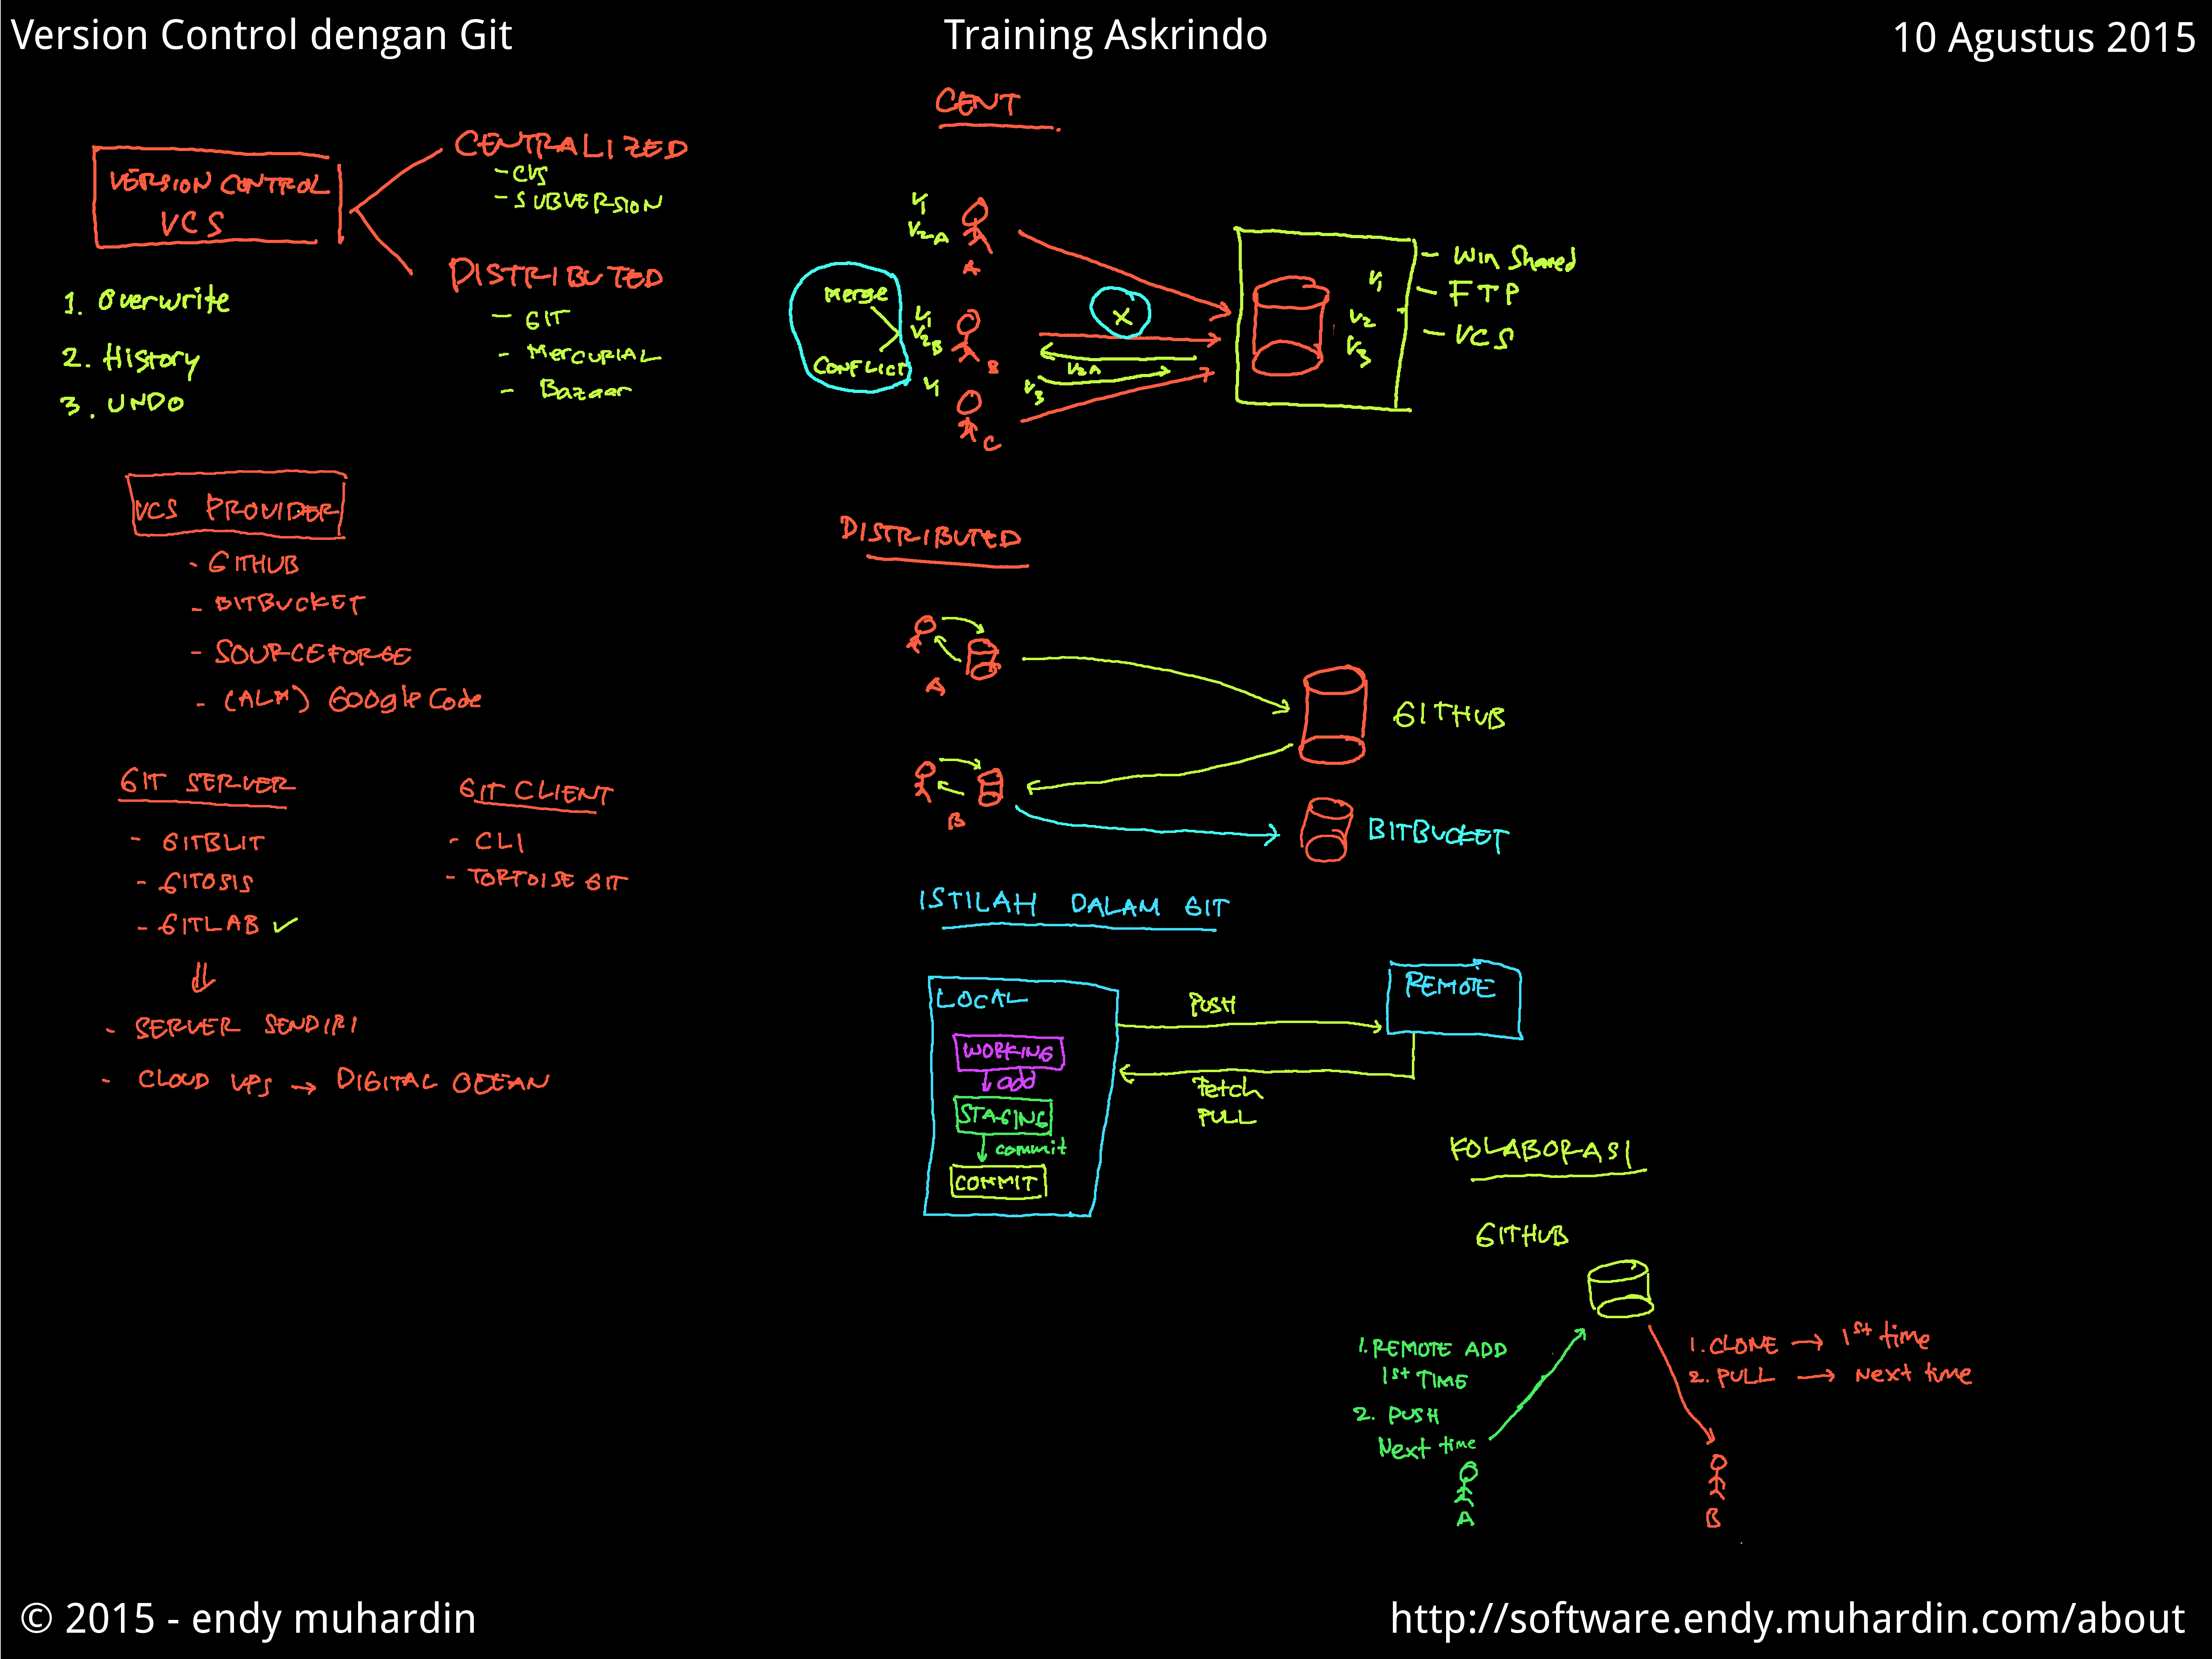 Version Control dengan Git
Training Askrindo
10 Agustus 2015
VERSION CONTROL
VCS
CENTRALIZED
- CVS
- SUBVERSION
DISTRIBUTED
- GIT
- MERCURIAL
- Bazaar
1. Overwrite
2. History
3. UNDO
VCS PROVIDER
- GITHUB
- BITBUCKET
- SOURCEFORGE
- (ALM) Google Code
GIT SERVER
- GITBLIT
- GITOSIS
- GITLAB ✓
- SERVER SENDIRI
- CLOUD VPS → DIGITAL OCEAN
GIT CLIENT
- CLI
- TORTOISE GIT
CENT
V1
V2A
A
Merge
CONFLICT
V1
V2B
B
V1
C
X
V2A
V3
V1
V2
V3
- Win Shared
- FTP
- VCS
DISTRIBUTED
A
GITHUB
B
BITBUCKET
ISTILAH DALAM GIT
LOCAL
WORKING
↓ add
STAGING
↓ commit
COMMIT
PUSH
REMOTE
Fetch
PULL
KOLABORASI
GITHUB
1. REMOTE ADD
1st TIME
2. PUSH
Next time
A
1. CLONE → 1st time
2. PULL → Next time
B
© 2015 - endy muhardin
http://software.endy.muhardin.com/about